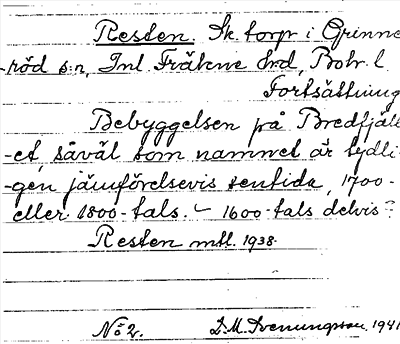 Resten. Sk. torp i Grinne
-röd s:n, Inl. Fräkne hrd, Boh. l.
Fortsättning
Bebyggelsen på Bredfjäll
-et, såväl som namnet är tydli-
-gen jämförelsevis sentida, 1700-
eller 1800-tals. – 1600-tals delvis?
Resten mtl. 1938.
No 2. D.M. Svenungsson. 1941